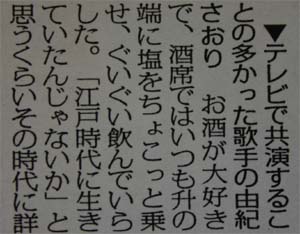 ▼テレビで共演するこ
との多かった歌手の由紀
さおり　お酒が大好き
で、酒席ではいつも升の
端に塩をちょこっと乗
せ、ぐいぐい飲んでいら
した。「江戸時代に生き
ていたんじゃないか」と
思うくらいその時代に詳